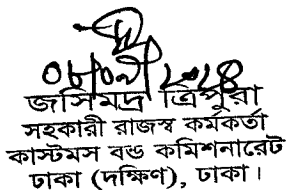 ০৮০৭/২০২৪
জসিমদ্র ত্রিপুরা
সহকারী রাজস্ব কর্মকর্তা
কাস্টমস বন্ড কমিশনারেট
ঢাকা (দক্ষিণ), ঢাকা।